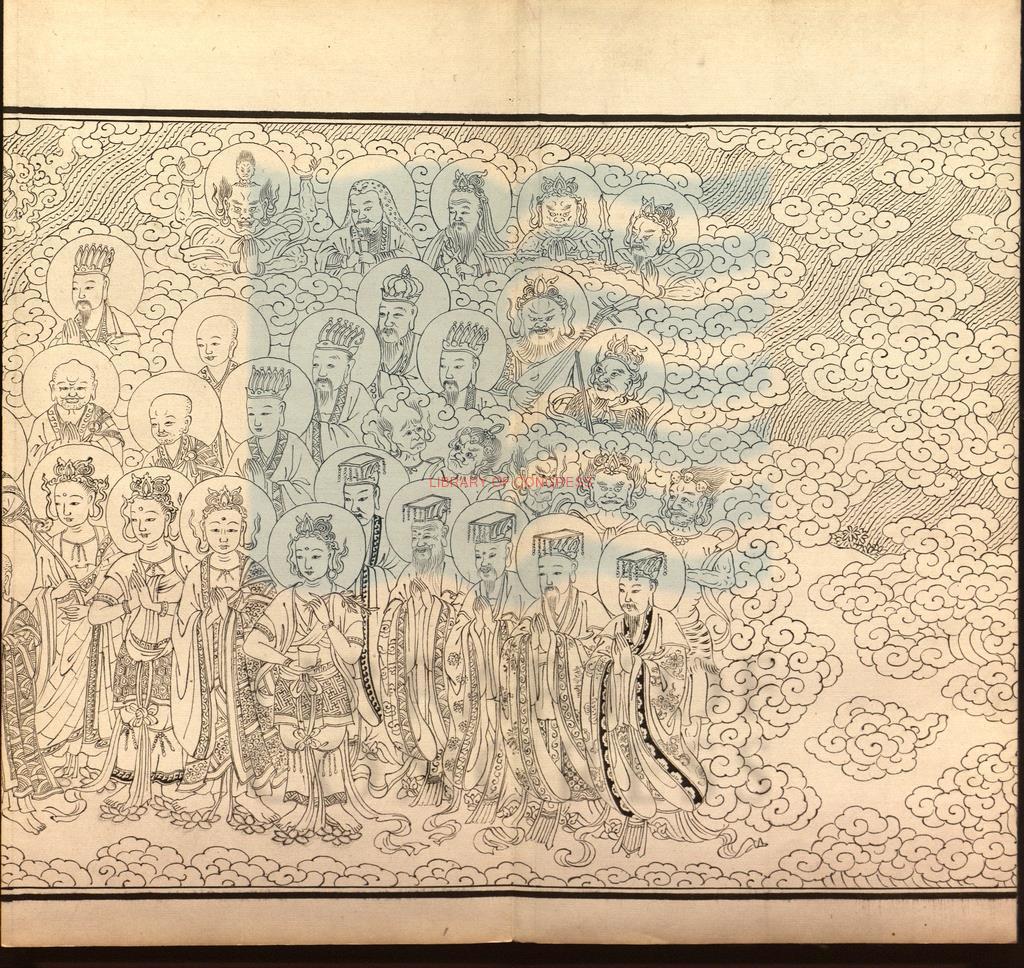 LIBRARY OF CONGRESS